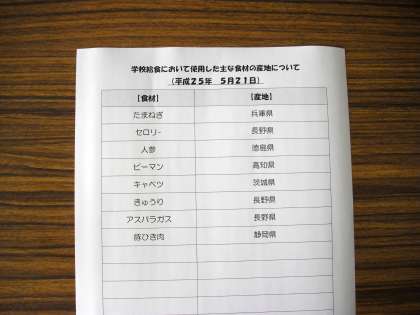 学校給食において使用した主な食材の産地について
（平成２５年　５月２１日）
【食材】　【産地】
たまねぎ　兵庫県
セロリー　長野県
人参　徳島県
ピーマン　高知県
キャベツ　茨城県
きゅうり　長野県
アスパラガス　長野県
豚ひき肉　静岡県